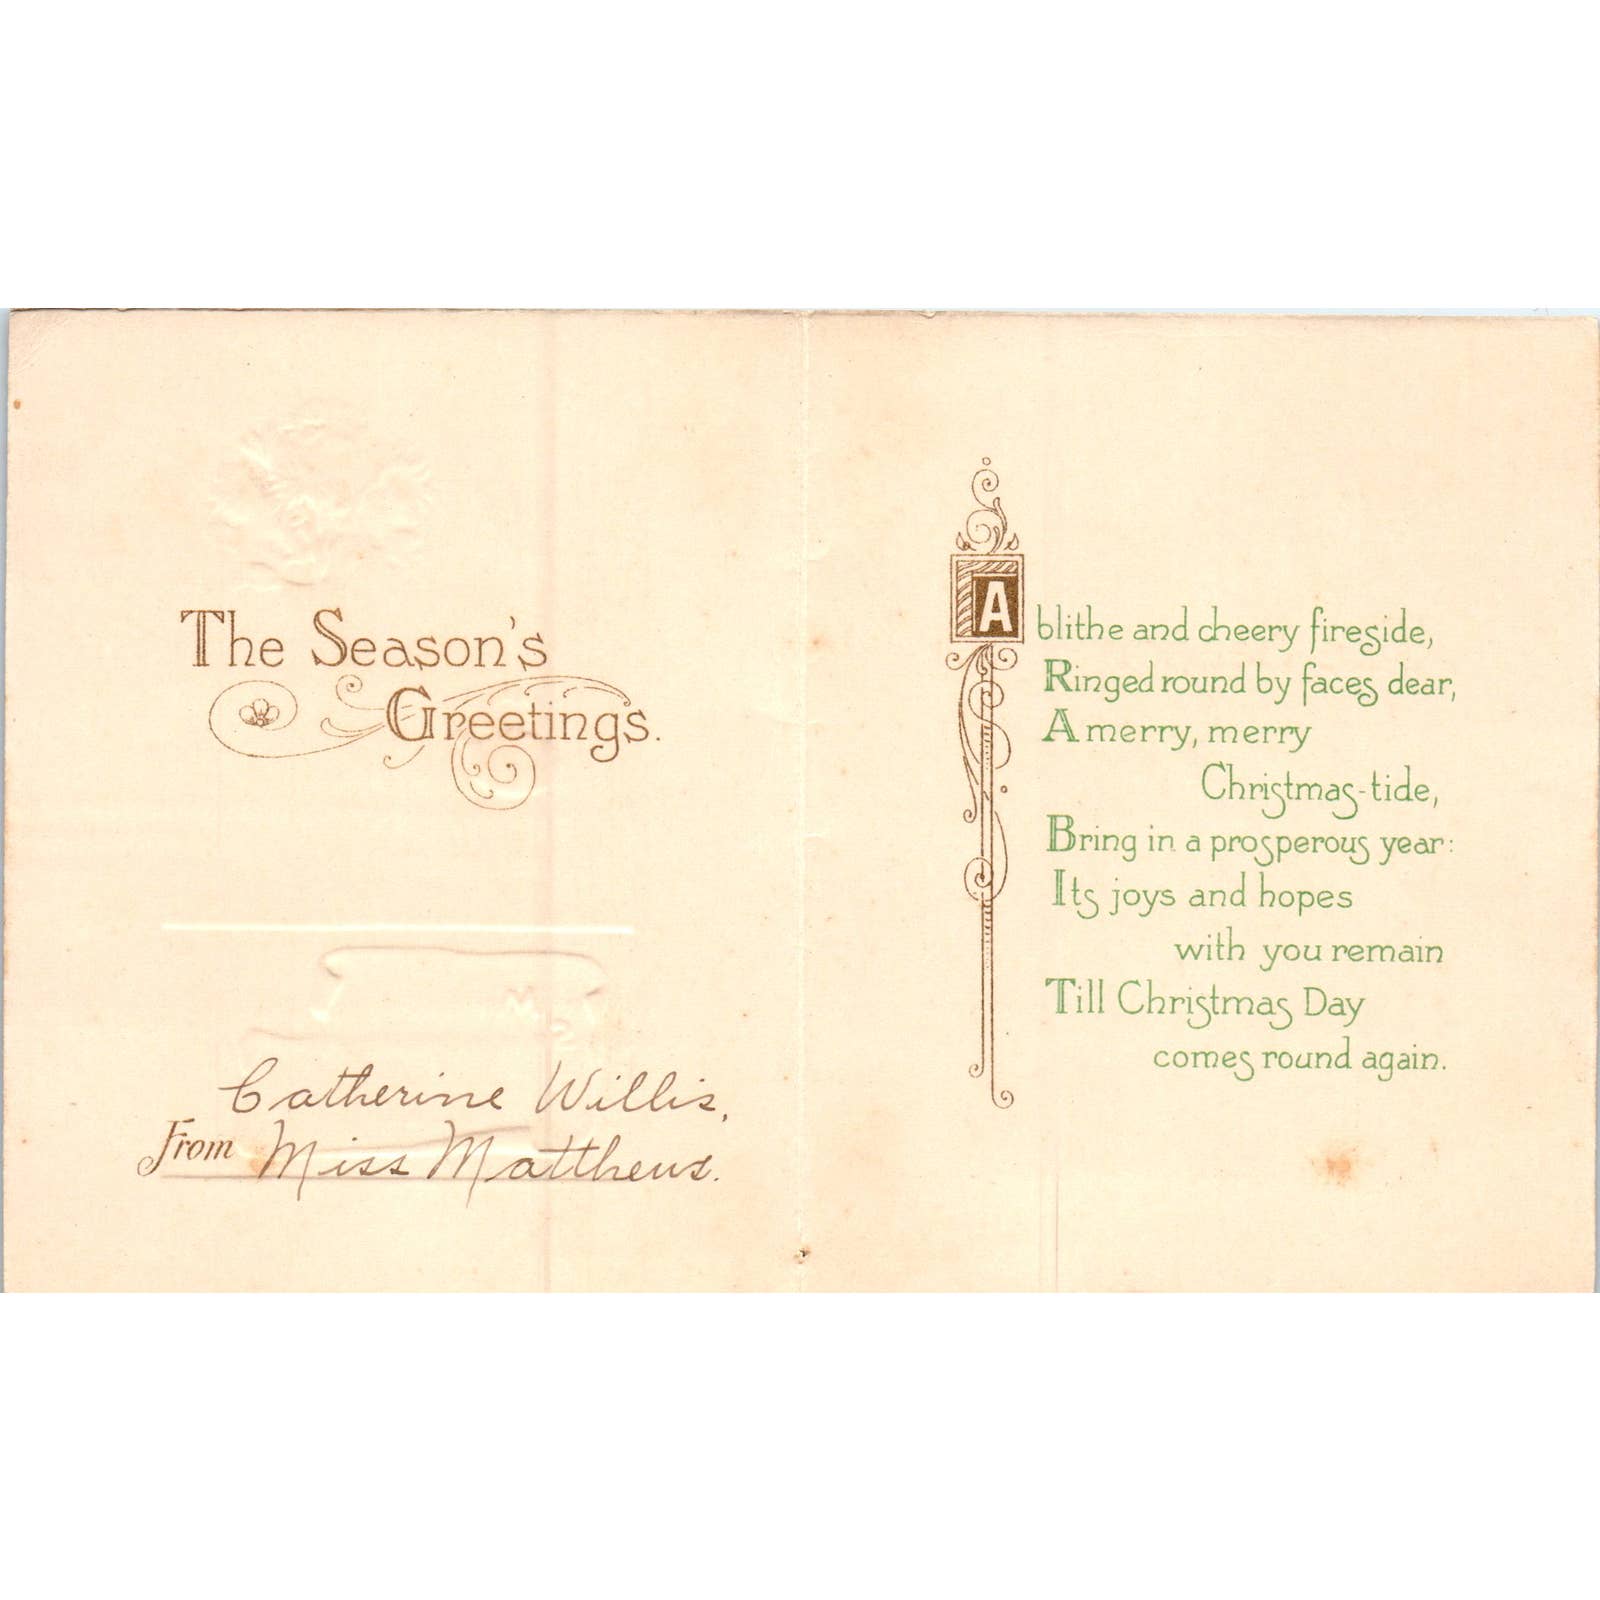 The Season's
Greetings.
Catherine Willis,
From Miss Matthews.
A blithe and cheery fireside,
Ringed round by faces dear,
A merry, merry
Christmas-tide,
Bring in a prosperous year:
Its joys and hopes
with you remain
Till Christmas Day
comes round again.